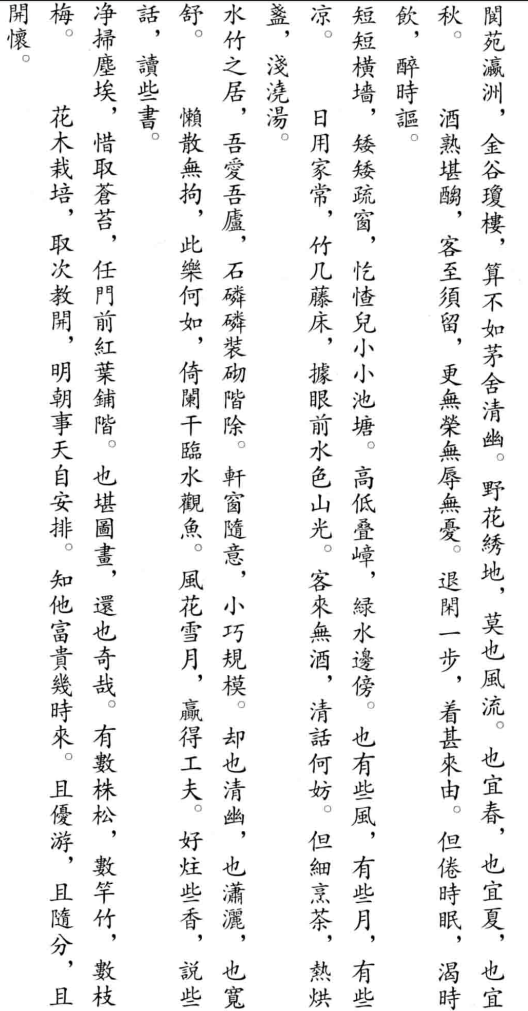 閬苑瀛洲，金谷瓊樓，算不如茅舍清幽。野花綉地，莫也風流。也宜春，也宜夏，也宜
秋。　　酒熟堪，客至須留，更無榮無辱無憂。退閑一步，着甚來由。但倦時眠，渴時
飲，醉時謳。
短短橫墻，矮矮疏窗，忔㤞兒小小池塘。高低叠嶂，綠水邊傍。也有些風，有些月，有些
凉。　　日用家常，竹几藤床，據眼前水色山光。客來無酒，清話何妨。但細烹茶，熱烘
盞，淺澆湯。
水竹之居，吾愛吾廬，石磷磷裝砌階除。軒窗隨意，小巧規模。却也清幽，也瀟灑，也寬
舒。　　懶散無拘，此樂何如，倚闌干臨水觀魚。風花雪月，贏得工夫。好炷些香，說些
話，讀些書。
净掃塵埃，惜取蒼苔，任門前紅葉鋪階。也堪圖畫，還也奇哉。有數株松，數竿竹，數枝
梅。　　花木栽培，取次教開，明朝事天自安排。知他富貴幾時來。且優游，且隨分，且
開懷。